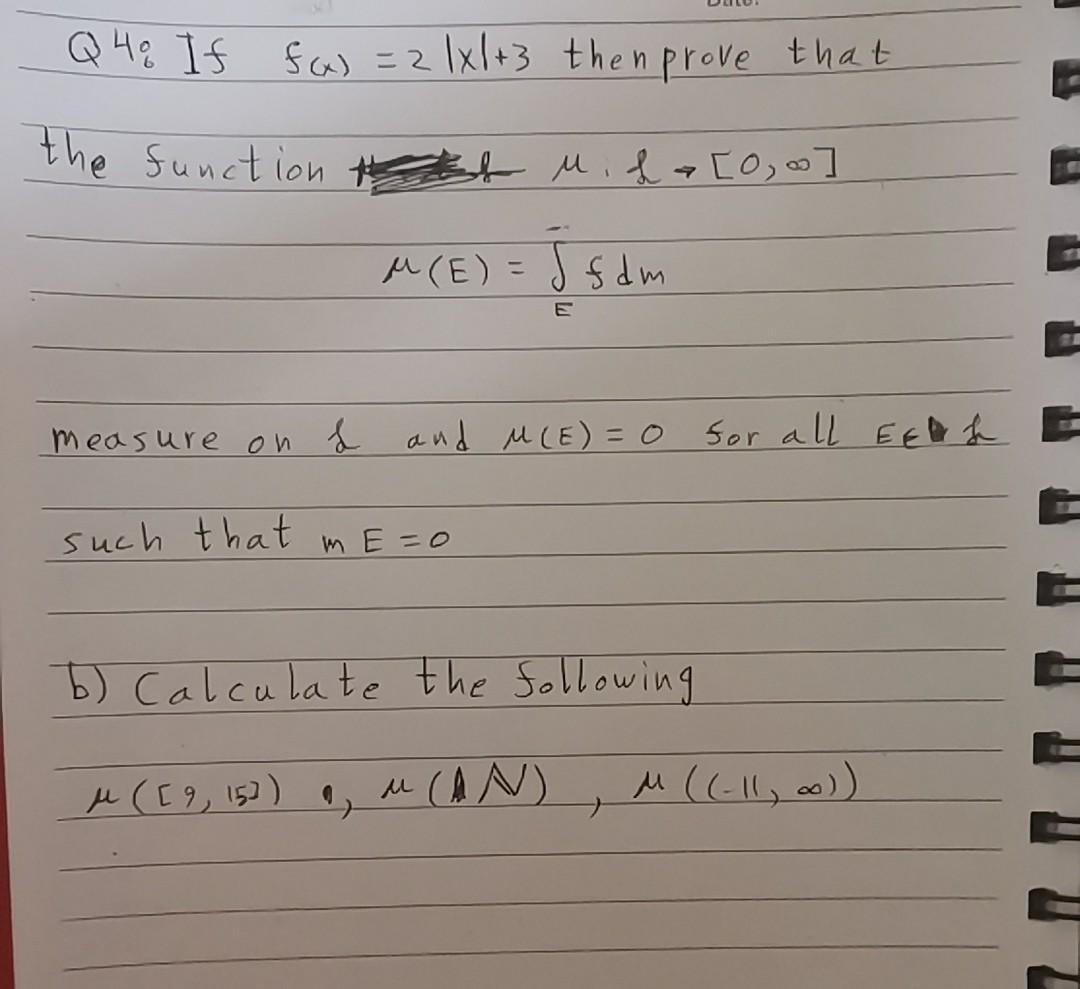 Q4: If f(x) = 2|x|+3 then prove that
the function μ: ℒ → [0,∞]
μ(E) = ∫ f dm
E
measure on ℒ and μ(E) = 0 for all E∈ ℒ
such that mE = 0
b) Calculate the following
μ([9,15]) , μ(ℕ) , μ((-11, ∞))